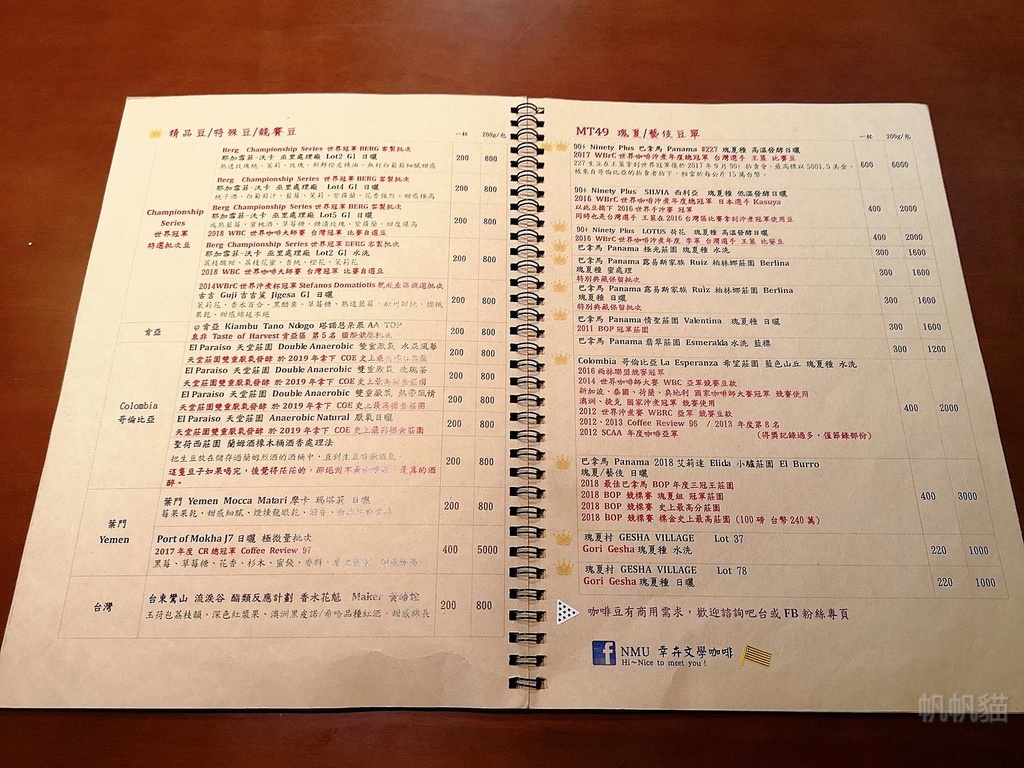 精品豆/特殊豆/競賽豆 一杯 200g/包
Championship
Series
世界冠軍
特選批次豆
Berg Championship Series 世界冠軍 BERG 客製批次
耶加雪菲-沃卡 巫里處理廠 Lot2 G1 日曬
200 800
Berg Championship Series 世界冠軍 BERG 客製批次
耶加雪菲-沃卡 巫里處理廠 Lot4 G1 日曬
200 800
Berg Championship Series 世界冠軍 BERG 客製批次
耶加雪菲-沃卡 巫里處理廠 Lot5 G1 日曬
2018 WBC 世界咖啡大師賽 台灣冠軍 比賽自選豆
200 800
Berg Championship Series 世界冠軍 BERG 客製批次
耶加雪菲-沃卡 巫里處理廠 Lot2 G1 水洗
荔枝酸甜、荔枝花蜜、杏桃、橙花、茉莉花
2018 WBC 世界咖啡大師賽 台灣冠軍 比賽自選豆
200 800
2014WBrC世界沖煮杯冠軍 Stefanos Domatiotis
古吉 Guji 吉吉莢 Jigesa G1 日曬
200 800
肯亞
肯亞 Kiambu Tano Ndogo 塔諾恩朵果 AA TOP
東非 Taste of Harvest 肯亞區 第5名
200 800
Colombia
哥倫比亞
El Paraiso 天堂莊園 Double Anaerobic 雙重厭氧 水蜜風暴
天堂莊園雙重厭氧發酵 於 2019 年拿下 COE 史上最高標金莊園
200 800
El Paraiso 天堂莊園 Double Anaerobic 雙重厭氧 玫瑰茶
天堂莊園雙重厭氧發酵 於 2019 年拿下 COE 史上最高標金莊園
200 800
El Paraiso 天堂莊園 Double Anaerobic 雙重厭氧 熱帶風情
天堂莊園雙重厭氧發酵 於 2019 年拿下 COE 史上最高標金莊園
200 800
El Paraiso 天堂莊園 Anaerobic Natural 厭氧日曬
天堂莊園雙重厭氧發酵 於 2019 年拿下 COE 史上最高標金莊園
200 800
聖荷西莊園 蘭姆酒橡木桶酒香處理法
把生豆放在儲存過蘭姆烈酒的酒桶中，直到生豆
這隻豆子如果喝完，後覺得茫茫的，是真的酒
醉。
200 800
葉門
Yemen
葉門 Yemen Mocca Matari 摩卡 瑪塔莉 日曬
莓果果乾、甜感細膩、煙燻龍眼乾、酒香
200 800
Port of Mokha J7 日曬 極微量批次
2017年度 CR總冠軍 Coffee Review 97
黑莓、草莓糖、花香、杉木、蜜餞、香料
400 5000
台灣
台東鷺山 流淚谷 酯類反應計劃 香水花魁 Maker 黃皓瑄
玉荷包荔枝韻、深色紅漿果、澳洲黑皮諾/希哈品種紅酒、甜感綿長
200 800
MT49 瑰夏/藝伎豆單 一杯 200g/包
90+ Ninety Plus 巴拿馬 Panama #227 瑰夏種 高溫發酵日曬
2017 WBrC 世界咖啡沖煮年度總冠軍 台灣選手 王策 比賽豆
227 生豆在王策得到世界冠軍後於 2017 年 9 月 90+ 拍賣會，最高標以 5001.5 美金，
被來自哥倫比亞的拍賣者拍下，相當於每公斤 15 萬台幣。
600 6000
90+ Ninety Plus SILVIA 西利亞 瑰夏種 低溫發酵日曬
2016 WBrC 世界咖啡沖煮年度總冠軍 日本選手 Kasuya
以此豆摘下 2016 世界手沖賽 冠軍
同時也是台灣選手 王策在 2016 台灣區比賽拿到沖煮冠軍使用豆
400 2000
90+ Ninety Plus LOTUS 荷花 瑰夏種 高溫發酵日曬
2016 WBrC 世界咖啡沖煮年度 季軍 台灣選手 王策 比賽豆
400 2000
巴拿馬 Panama 極光莊園 瑰夏種 水洗
300 1600
巴拿馬 Panama 露易斯家族 Ruiz 柏林娜莊園 Berlina
瑰夏種 蜜處理
特別典藏保留批次
300 1600
巴拿馬 Panama 露易斯家族 Ruiz 柏林娜莊園 Berlina
瑰夏種 日曬
特別典藏保留批次
300 1600
巴拿馬 Panama 情聖莊園 Valentina 瑰夏種 日曬
2011 BOP 冠軍莊園
300 1600
巴拿馬 Panama 翡翠莊園 Esmeralda 水洗 藍標
300 1200
Colombia 哥倫比亞 La Esperanza 希望莊園 藍色山丘 瑰夏種 水洗
2016 西林聯盟競賽冠軍
2014 世界咖啡師大賽 WBC 亞軍競賽豆款
新加坡、泰國、荷蘭、奧地利 國家咖啡師大賽冠軍 競賽使用
澳洲、捷克 國家沖煮冠軍 競賽使用
2012 世界沖煮賽 WBRC 亞軍 競賽豆款
2012、2013 Coffee Review 96 / 2013 年度第8名
2012 SCAA 年度咖啡亞軍 (得獎記錄過多，僅節錄部份)
400 2000
巴拿馬 Panama 2018 艾莉達 Elida 小驢莊園 El Burro
瑰夏/藝伎 日曬
2018 最佳巴拿馬 BOP 年度三冠王莊園
2018 BOP 競標賽 瑰夏組 冠軍莊園
2018 BOP 競標賽 史上最高分莊園
2018 BOP 競標賽 標金史上最高莊園 (100 磅 台幣 240 萬)
400 3000
瑰夏村 GESHA VILLAGE Lot 37
Gori Gesha 瑰夏種 水洗
220 1000
瑰夏村 GESHA VILLAGE Lot 78
Gori Gesha 瑰夏種 日曬
220 1000
咖啡豆有商用需求，歡迎諮詢吧台或 FB 粉絲專頁
NMU 幸卉文學咖啡
Hi~Nice to meet you !
帆帆貓